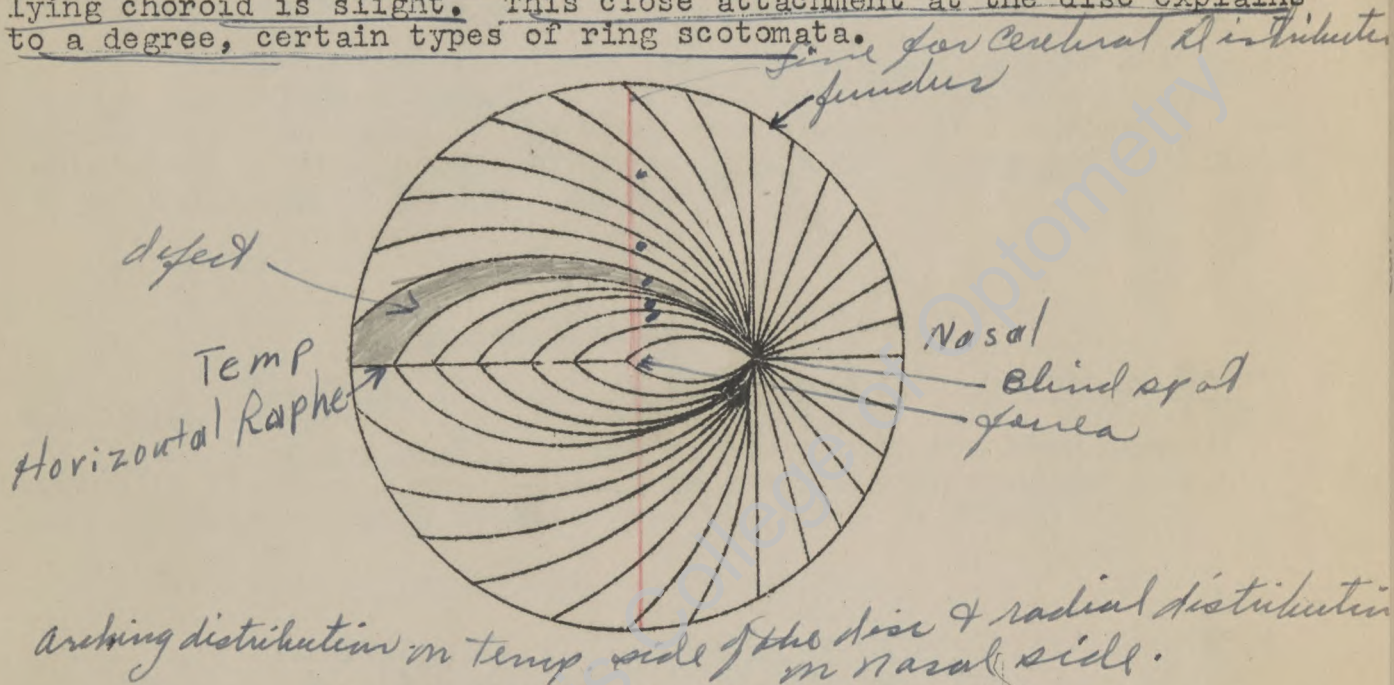 lying choroid is slight. This close attachment at the disc explains
to a degree, certain types of ring scotomata.
Line for Cerebral Distributio
fundus
defect
Temp
Horizontal Raphe
Nasal
Blind spot
fovea
Arching distribution on Temp side of the disc & radial distributin
on nasal side.
College of Optometry